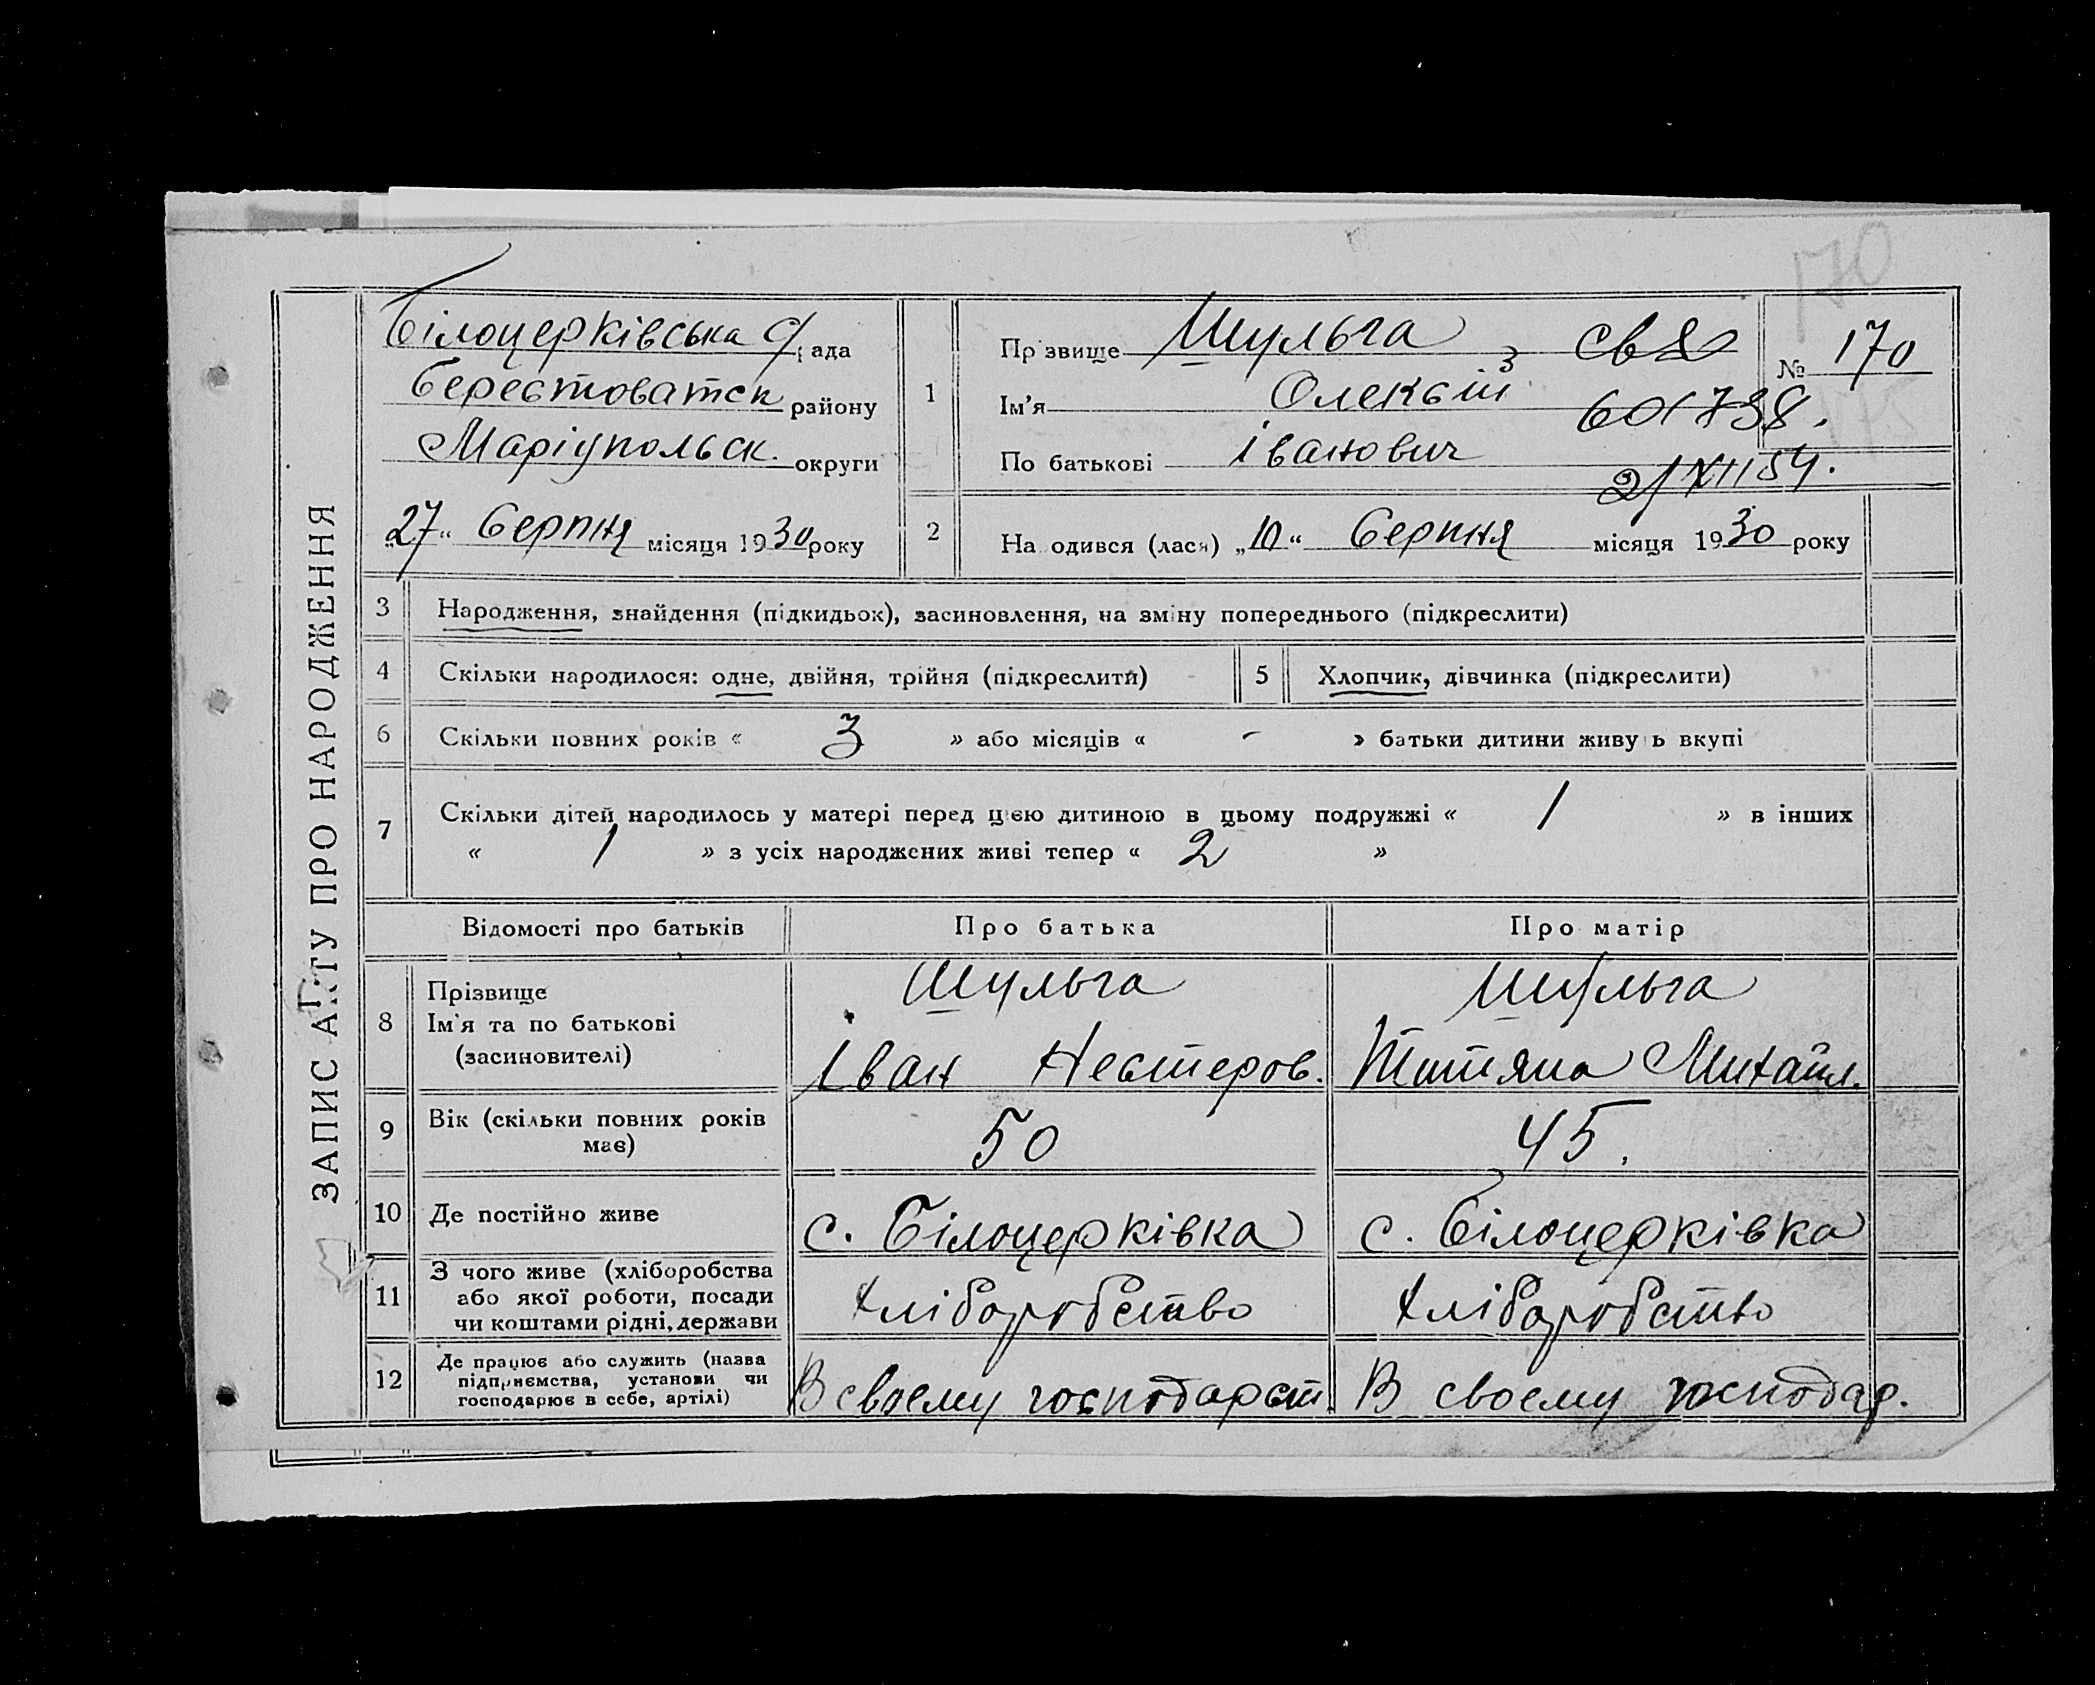 170
ЗАПИС АКТУ ПРО НАРОДЖЕННЯ
Білоцерківська с/рада
Берестоватск району
Маріупольск. округи
„27“ Серпня місяця 1930 року
1
Прізвище Шульга
Ім'я Олексій
По батькові Іванович
з
601738.
2/XII 54.
№ 170
2
Народився (лася) „10“ Серпня місяця 1930 року
3 Народження, знайдення (підкидьок), засиновлення, на зміну попереднього (підкреслити)
4 Скільки народилося: одне, двійня, трійня (підкреслити)
5 Хлопчик, дівчинка (підкреслити)
6 Скільки повних років « 3 » або місяців « - » батьки дитини живуть вкупі
7 Скільки дітей народилось у матері перед цією дитиною в цьому подружжі « 1 » в інших
« 1 » з усіх народжених живі тепер « 2 »
Відомості про батьків Про батька Про матір
8 Прізвище
Ім'я та по батькові
(засиновителі)
Шульга
Іван Нестеров.
Шульга
Титяна Михайл.
9 Вік (скільки повних років
має)
50
45.
10 Де постійно живе
с. Білоцерківка
с. Білоцерківка
11 З чого живе (хліборобства
або якої роботи, посади
чи коштами рідні, держави
хліборобство
хліборобство
12 Де працює або служить (назва
підприємства, установи чи
господарює в себе, артілі)
В своему господарст
В своему господар.